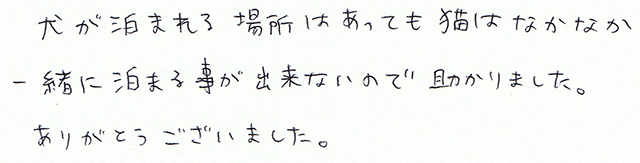 犬が泊まれる場所はあっても猫はなかなか
一緒に泊まる事が出来ないので助かりました。
ありがとうございました。